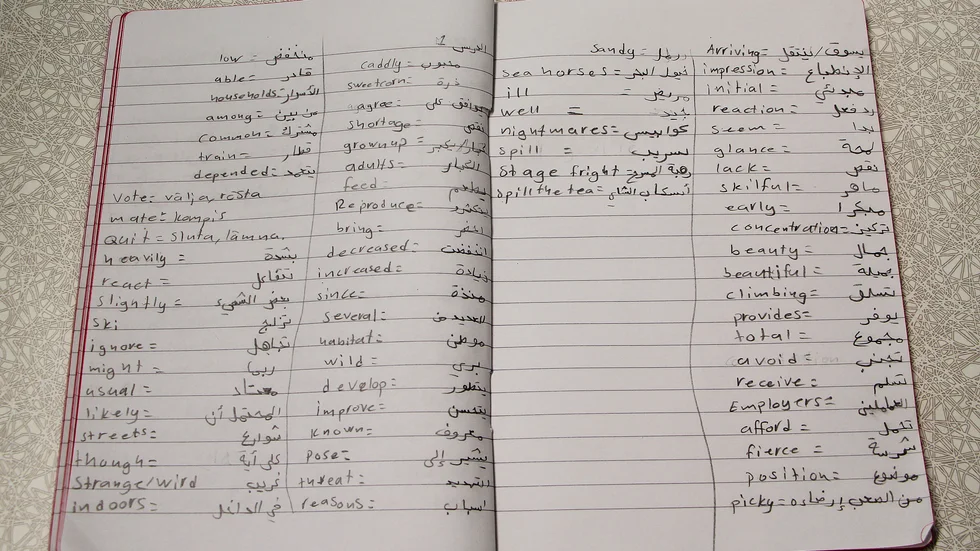 low = منخفض
able = قادر
households = الأسر
among = من بين
common = مشترك
train = قطار
depended = يعتمد
Vote = välja, rösta
mate = kompis
Quit = sluta, lämna.
heavily = بشدة
react = تتفاعل
slightly = بعض الشيء
ski تزلج
ignore = تجاهل
might = ربما
usual = معتاد
likely = المحتمل أن
streets = شوارع
though =
Strange/wird غريب
indoors = في الداخل
الدرس 1
caddly =
sweetcorn = ذرة
agree = يوافق على
shortage = نقص
grownup =
adults = الكبار
feed =
Reproduce =
bring =
decreased = انخفضت
increased = زيادة
since = منذة
several = العديد من
habitat = موطن
wild = بري
develop = يتطور
improve = يتحسن
known = معروف
pose = يشير إلى
threat = التهديد
reasons = اسباب
Sandy = رمل
sea horses = خيول البحر
ill = مريض
well = جيد
nightmares = كوابيس
spill = تسريب
Stage fright =
spill the tea =
Arriving = يسوق/ينتقل
impression = الإنطباع
initial = مبدئي
reaction = رد فعل
seem = بدا
glance = لمحة
lack = نقص
skilful = ماهر
early = مبكرا
concentration = تركيز
beauty = جمال
beautiful = جميلة
climbing = تسلق
provides = يوفر
total = مجموع
avoid = تجنب
receive = تسلم
Employers =
afford = تحمل
fierce = شرسة
position = موضوع
picky = من الصعب إرضاءه